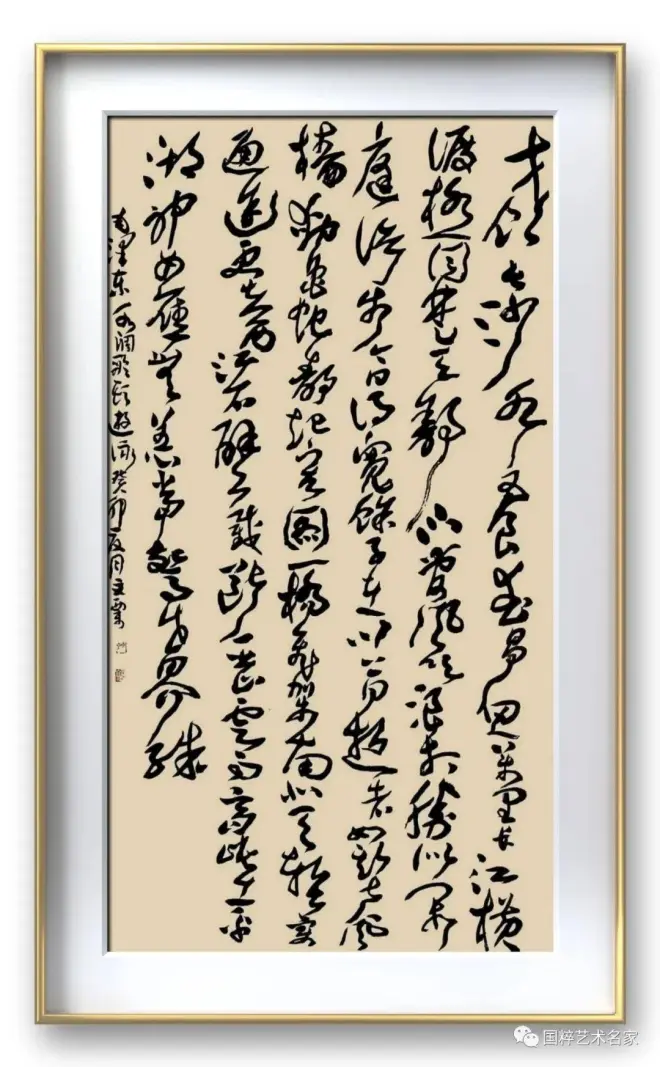 才饮长沙水又食武昌鱼萬里长江横
渡极目楚天舒不管风吹浪打胜似闲
庭信步今日得宽馀子在川上曰逝者如斯夫风
樯动龟蛇静起宏圖一橋飞架南北天堑变
通途更立西江石壁截断巫山雲雨高峡出平
湖神女应無恙当驚世界殊
毛澤东水调歌头遊泳癸卯夏月立
国粹艺术名家